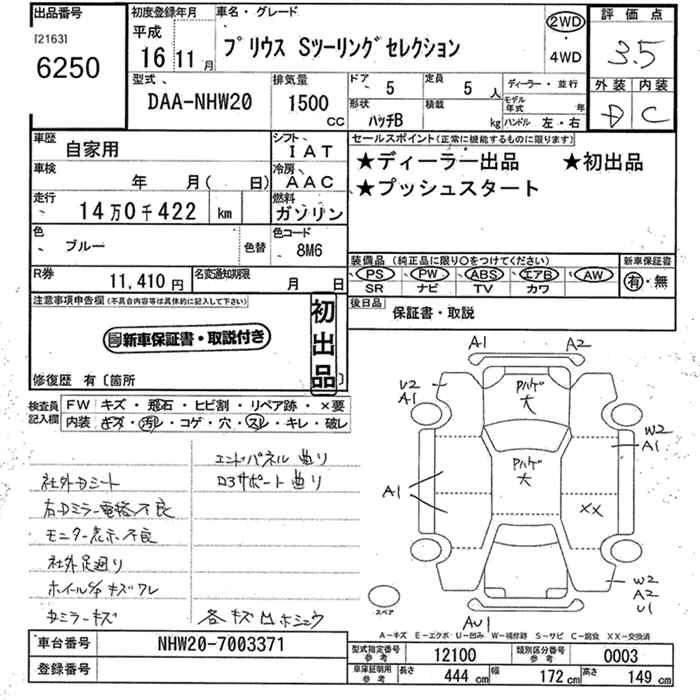 出品番号
[2163]
6250
初度登録年月
平成
16 11月
車名・グレード
プリウス Sツーリングセレクション
2WD
4WD
評価点
3.5
外装 内装
D C
型式
DAA-NHW20
排気量
1500
CC
ドア 5
定員 5 人
ディーラー・並行
形状 ハッチB
積載 kg
モデル年式 年
ハンドル 左・右
車歴 自家用
シフト IAT
車検 年 月( 日)
冷房 AAC
走行 14万0千422 km
燃料 ガソリン
色 ブルー 色替
色コード 8M6
R券 11,410円
名変通知期限 月 日
セールスポイント(正常に機能するものに限ります)
★ディーラー出品 ★初出品
★プッシュスタート
装備品 (純正品に限り○をつけてください)
新車保証書
PS PW ABS エアB AW
SR ナビ TV カワ
有・無
後日品 保証書・取説
注意事項申告欄(不具合内容等は具体的に記入して下さい)
新車保証書・取説付き
初出品
修復歴 有〔箇所 〕
検査員記入欄
FW キズ・飛石・ヒビ割・リペア跡・×要
内装 キズ・汚れ・コゲ・穴・スレ・キレ・破レ
エンドパネル曲り
社外Dシート
ロアサポート曲り
右Dミラー電格不良
モニター表示不良
社外足廻り
ホイルS/A キズワレ
Dミラーキズ
各キズ凹ホシュウ
A1 A2
U2
A1
Pハゲ
大
W2
A1
Pハゲ
大
A1
XX
W2
A2
U1
スペア
AU1
A-キズ E-エクボ U-凹み W-補修跡 S-サビ C-腐食 XX-交換済
車台番号 NHW20-7003371
登録番号
型式指定番号 参考 12100
類別区分番号 参考 0003
車庫証明用 参考 長さ 444 cm 幅 172 cm 高さ 149 cm